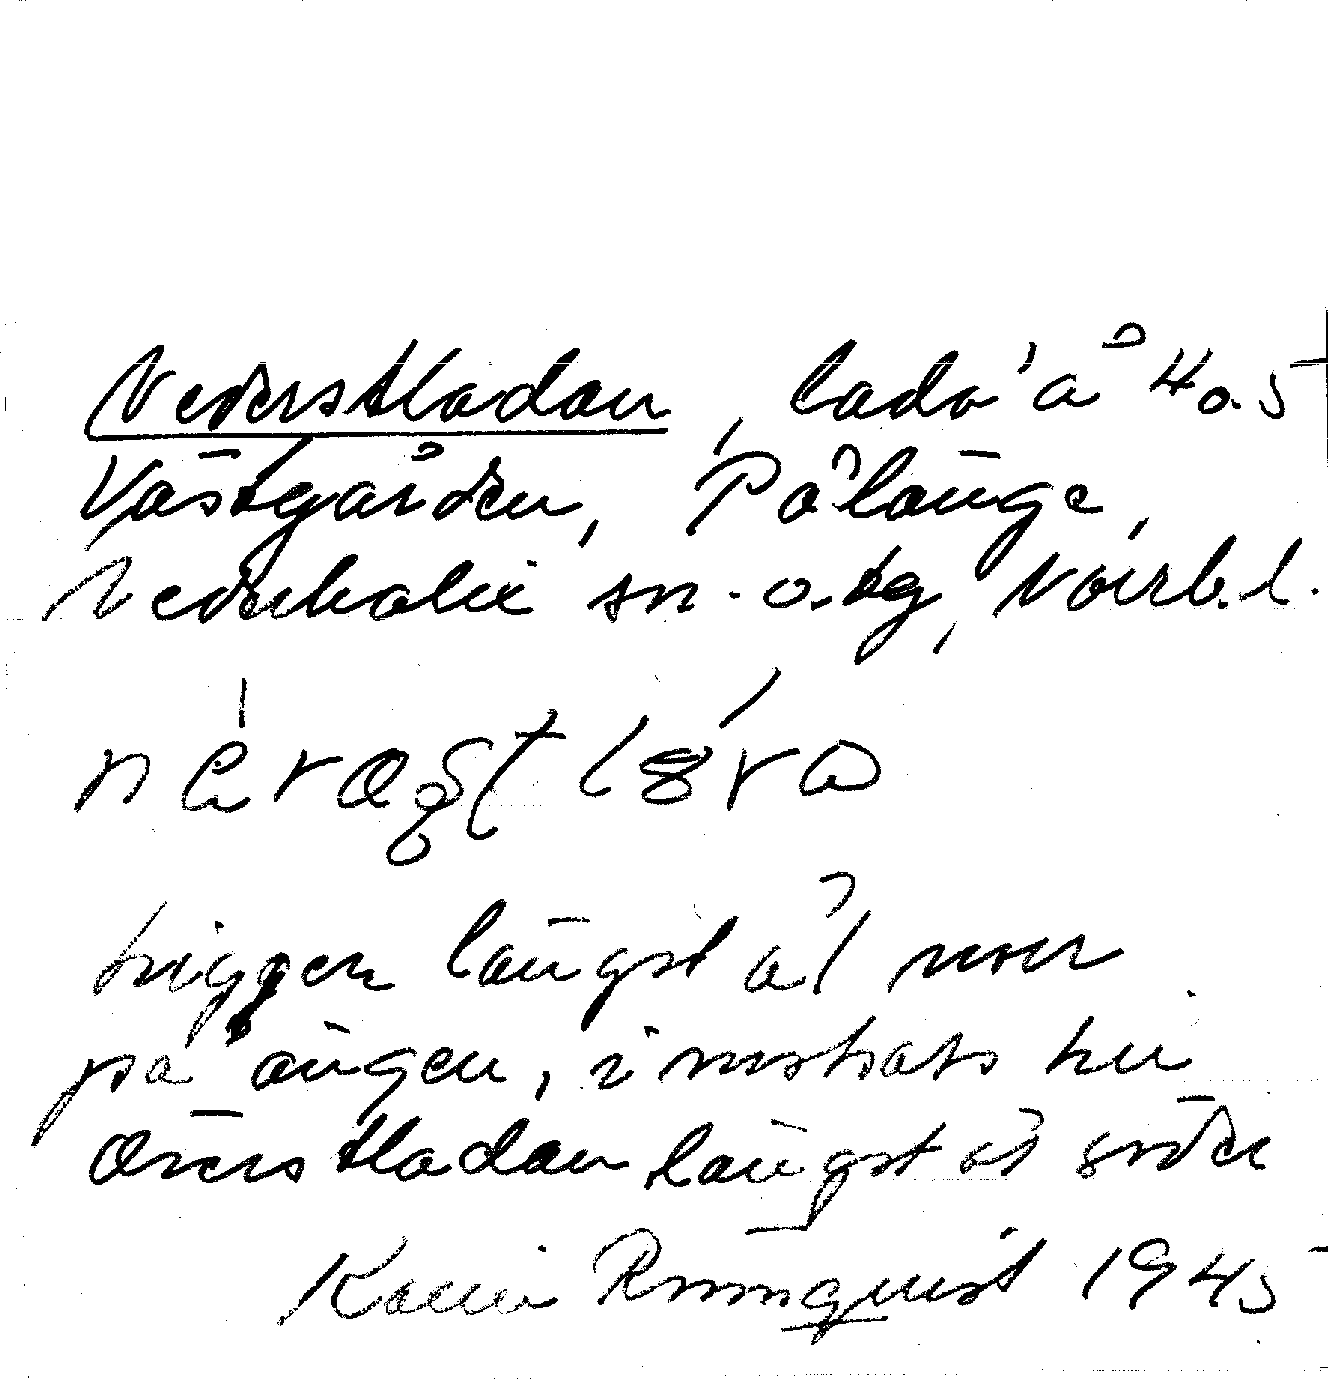 Nederstladan, lada å 4 o. 5
Västgården, Pålänge,
Nederkalix sn. o. tg, Norrb. l.
ligger längst åt norr
på ängen, i motsats till
Överstladan längst åt söder
Karin Rönnqvist 1945